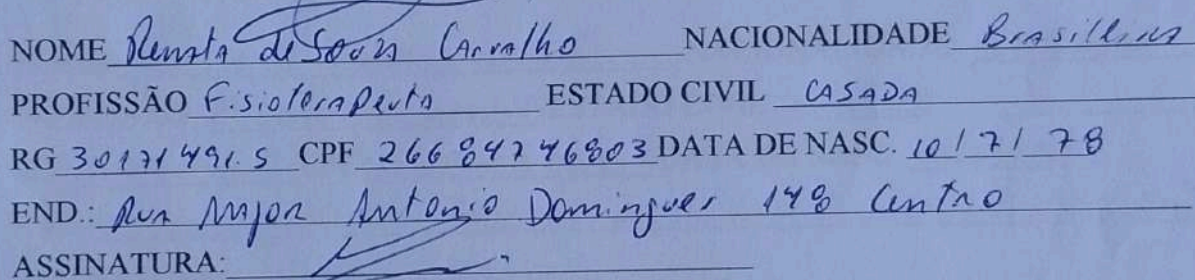 NOME Renata de Souza Carvalho NACIONALIDADE Brasilleira
PROFISSÃO Fisioterapeuta ESTADO CIVIL CASADA
RG 30171491.5 CPF 26684746803 DATA DE NASC. 10/7/78
END.: Rua Major Antonio Domingues 148 Centro
ASSINATURA: